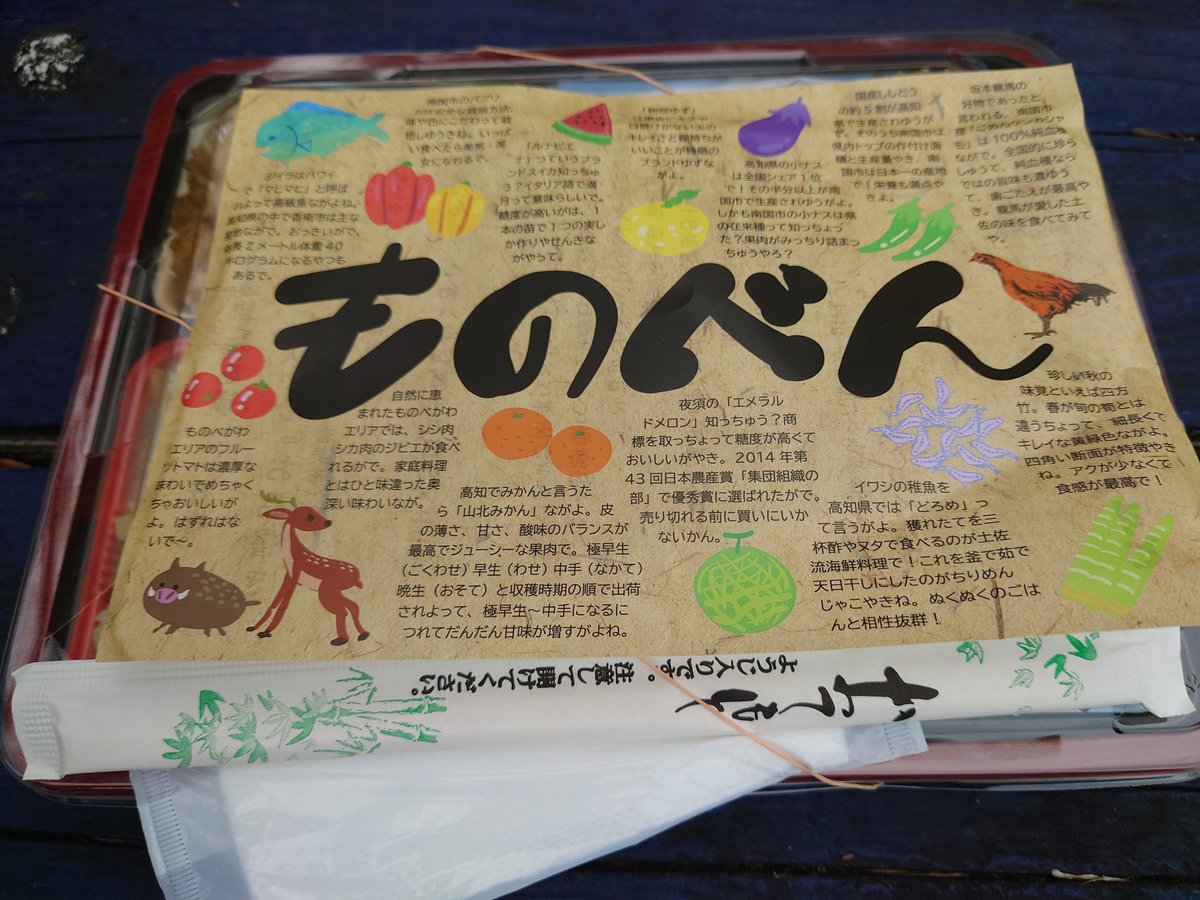 南国市のパプリ
味や色にこだわって栽
培しゆうきね。いっぱ
い食べたら美男・美
女になれるで。
シイラはハワイ
で「マヒマヒ」と呼ば
れよって高級魚ながよね。
高知県の中で香南市は主な
産地ながで。おっさいがで、
体長2メートル体重40
キログラムになるやつも
あるで。
「ルナピエ
ナ」っていうブラ
ンドスイカ知っちゅ
う？イタリア語で満
月って意味らしいで。
糖度が高いがは、1
本の苗で1つの実し
か作りやせんきな
がやって。
日焼けがない玉の
キレイさと棚持ちが
いいことが特徴の
ブランドゆずな
がよ。
高知県の小ナス
は全国シェア1位
で！その半分以上が南
国市で生産されゆうがよ。
しかも南国市の小ナスは県
の在来種って知っちょっ
た？果肉がみっちり詰まっ
ちゅうやろ？
国産ししとう
の約5割が高知
県で生産されゆうが
ぜ。そのうち南国市は
県内トップの作付け面
積と生産量やき、南
国市は日本一の産地
で！栄養も満点や
きよ。
坂本龍馬の
好物であったと
言われる、南国市
産「ごめんケンカシャ
モ」は100%純血種
ながで。全国的に珍ら
しゅうて、純血種なら
ではの旨味も濃ゆう
て、歯ごたえが最高や
き。龍馬が愛した土
佐の味を食べてみて
や。
ものべん
ものべがわ
エリアのフルー
ツトマトは濃厚な
まわいでめちゃく
ちゃおいしいが
よ。はずれはな
いで～。
自然に恵
まれたものべがわ
エリアでは、シシ肉
シカ肉のジビエが食べ
れるがで。家庭料理
とはひと味違った奥
深い味わいなが。
高知でみかんと言うた
ら「山北みかん」ながよ。皮
の薄さ、甘さ、酸味のバランスが
最高でジューシーな果肉で。極早生
（ごくわせ）早生（わせ）中手（なかて）
晩生（おそて）と収穫時期の順で出荷
されよって、極早生～中手になるに
つれてだんだん甘味が増すがよね。
夜須の「エメラル
ドメロン」知っちゅう？商
標を取っちょって糖度が高くて
おいしいがやき。2014年第
43回日本農産賞「集団組織の
部」で優秀賞に選ばれたがで。
売り切れる前に買いにいか
ないかん。
イワシの稚魚を
高知県では「どろめ」っ
て言うがよ。獲れたてを三
杯酢やヌタで食べるのが土佐
流海鮮料理で！これを釜で茹で
天日干しにしたのがちりめん
じゃこやきね。ぬくぬくのごは
んと相性抜群！
珍しい秋の
味覚といえば四方
竹。春が旬の筍とは
違うちょって、細長くて
キレイな黄緑色ながよ。
四角い断面が特徴やき
ね。アクが少なくて
食感が最高で！
おてもと
ようじ入りです。注意して開けてください。